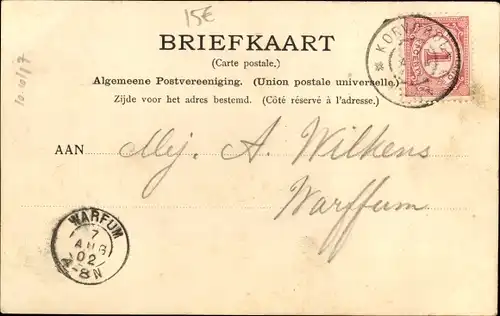 15€
BRIEFKAART
(Carte postale.)
Algemeene Postvereeniging. (Union postale universelle.)
Zijde voor het adres bestemd. (Côté réservé à l'adresse.)
AAN Mej. A. Wilkens
Warffum
WARFUM
7
AUG
02
8N
1